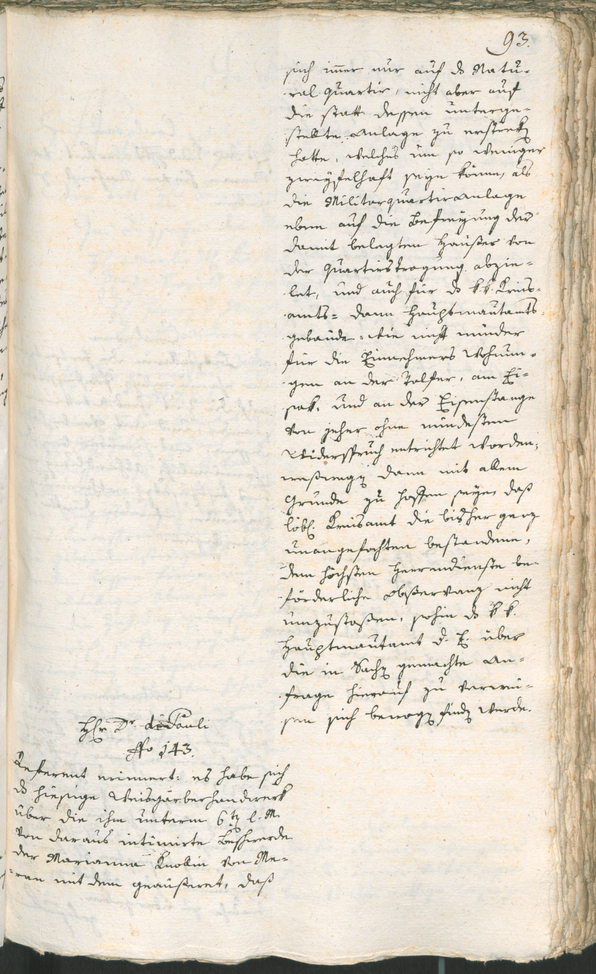 93.
sich immer nur auf ds Natu-
ral quartir, nicht aber auf
die statt dessen unterge-
stellte Anlage zu erstrecken
hatte, welches um so weniger
zweifelhaft seyn könne, als
die Militarquartiranlage
eben auf die Befreyung der
damit belegten Häußer von
der quartirstragung abzie-
let, und auch für ds k.k. Kreis-
amts- dann Hauptmautamts-
gebäude, wie nicht minder
für die Einnehmers Wohnun-
gen an der Talfer, am Ei-
sak, und an der Eisenstange
von jeher ohne mindesten
Widerspruch entrichtet worden,
weßwegen dann mit allem
Grunde zu hoffen seyn, daß
löbl. Kreisamt die bisher ganz
unangefochten bestandene,
dem höchsten Herrendienste be-
förderliche Observanz nicht
umzustossen, sohin ds k.k.
Hauptmautamt d. E. über
die in Sachen gemachte An-
frage hierauf zu verwei-
sen sich bewogen finden werde.
Hr. Dr. di Pauli
No 143.
Referent erinnert: es habe sich
ds hiesige Weisgärberhandwerk
über die ihm unterm 6ten l. M.
von daraus intimirte Beschwerde
der Marianna Knollin von Me-
ran mit dem geäußeret, daß